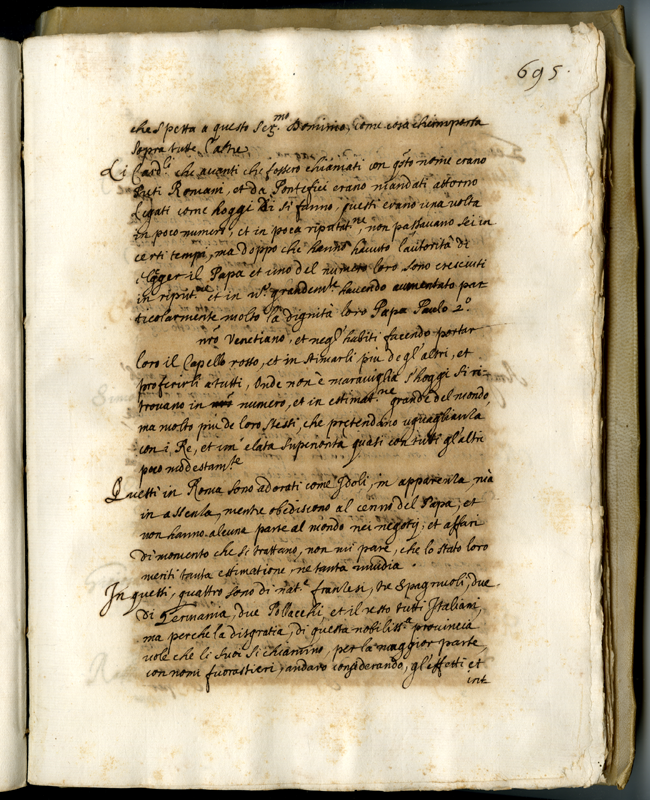 695.
che spetta a questo Ser.mo Dominio, come cosa che importa
sopra tutte l'altre
Li Card.li che avanti che fossero chiamati con q.sto nome erano
Preti Romani, et da Pontefici erano mandati attorno
legati come hoggi di si fanno, questi erano una volta
in poco numero, et in poca riputat.ne, non passavano sei in
certi tempi, ma doppo che hanno havuto l'autorità di
elleger il Papa et uno del numero loro sono cresciuti
in riput.ne et in n.o grandem.te havendo aumentato par
ticolarmente molto la dignità loro Papa Paulo 2.o
nr̃o Venetiano, et negl'habiti facendo portar
loro il Capello rosso, et in stimarli più degl'altri, et
proferirli a tutti, Onde non è maraviglia s'hoggi si ri-
trovano in numero, et in estimat.ne grande del mondo,
ma molto più de loro stessi, che pretendono uguaglianza
con i Re, et im' elata superiorità quasi con tutti gl'altri
poco modestam.te
Questi in Roma sono adorati come Idoli, in apparenza mà
in assenza, mentre obediscono al cenno del Papa, et
non hanno alcuna parte al mondo nei negotÿ, et affari
di momento che si trattano, non mi pare, che lo stato loro
meriti tanta estimatione, ne tanta invidia.
In questi, quattro sono di nat.e francesi, tre Spagnuoli, due
di Germania, due Pollacchi et il resto tutti Italiani,
ma perche la disgratia, di questa nobiliss.a provincia
vole che li suoi si chiamino, per la maggior parte,
con nomi fuorastieri, andarò considerando, gl'effetti et
int